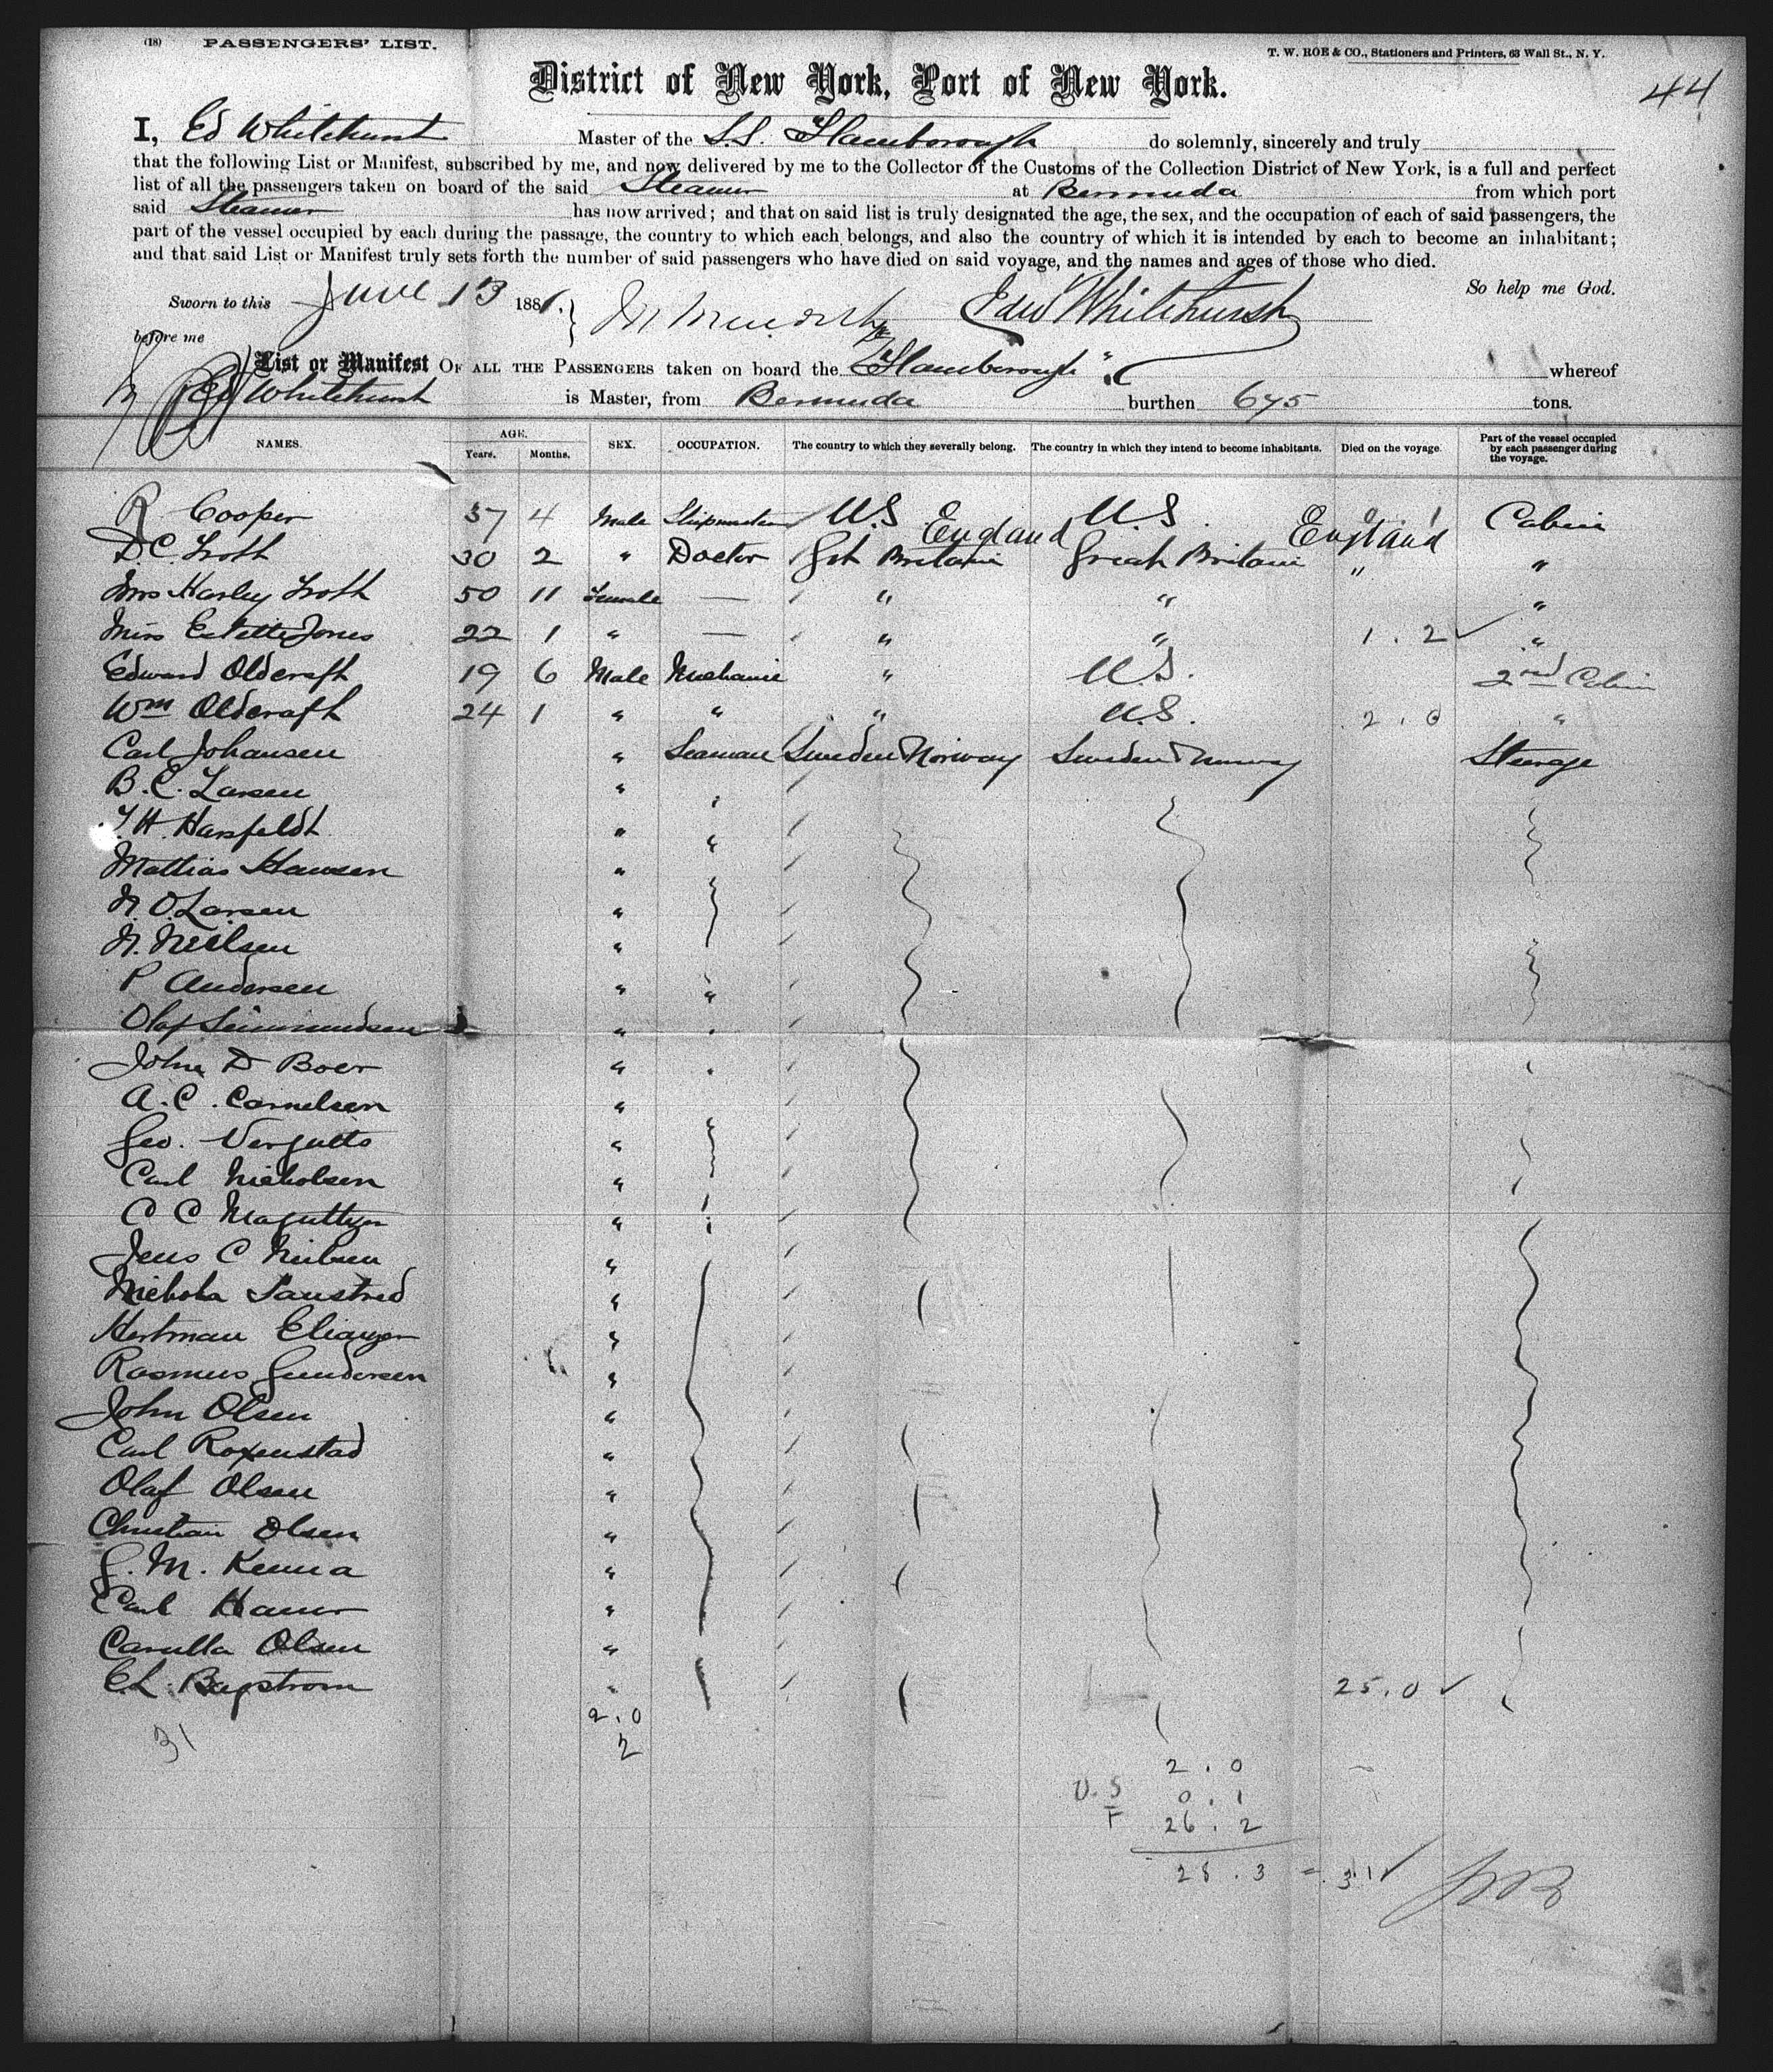 (18) PASSENGERS' LIST.
T. W. ROE & CO., Stationers and Printers, 63 Wall St., N. Y.
44
District of New York, Port of New York.
I, Ed Whitehurst Master of the S.S. Flamborough do solemnly, sincerely and truly
that the following List or Manifest, subscribed by me, and now delivered by me to the Collector of the Customs of the Collection District of New York, is a full and perfect
list of all the passengers taken on board of the said Steamer at Bermuda from which port
said Steamer has now arrived; and that on said list is truly designated the age, the sex, and the occupation of each of said passengers, the
part of the vessel occupied by each during the passage, the country to which each belongs, and also the country of which it is intended by each to become an inhabitant;
and that said List or Manifest truly sets forth the number of said passengers who have died on said voyage, and the names and ages of those who died.
So help me God.
Sworn to this June 13 1881. Edw Whitehurst
before me
List or Manifest OF ALL THE PASSENGERS taken on board the "Flamborough" whereof
Ed Whitehurst is Master, from Bermuda burthen 675 tons.
NAMES. AGE. Years. Months. SEX. OCCUPATION. The country to which they severally belong. The country in which they intend to become inhabitants. Died on the voyage. Part of the vessel occupied by each passenger during the voyage.
R Cooper 37 4 Male U.S U.S. 0 1 Cabin
England England
D.C. Troth 30 2 " Doctor Gt Britain Great Britain " "
Mrs Harley Troth 50 11 Female — " " "
Miss Estelle Jones 22 1 " — " " 1 . 2 ✓ "
Edward Oldcraft 19 6 Male Mechanic " U.S. 2nd Cabin
Wm Oldcraft 24 1 " " " U.S. 2 . 0 "
Carl Johansen " Seaman Sweden Norway Sweden Norway Steerage
B. C. Larsen "
H. Harsfeldt "
Mathias Hansen "
N. O. Larsen "
N. Neilsen "
P Andersen " "
Olaf Simmundsen "
John D Boer "
A. C. Cornelsen "
Geo. "
Carl Nicholsen "
C C "
Jens C Neilsen "
"
Hartman "
Rasmus Gundersen "
John Olsen "
Carl Roxenstad "
Olaf Olsen "
Christian Olsen "
G. M. Kenna "
Carl "
Olsen "
C.L. Bagstrom " 25 . 0 ✓
31
2.0
2
2 . 0
U.S 0 . 1
F 26 . 2
28 . 3 = 31 ✓